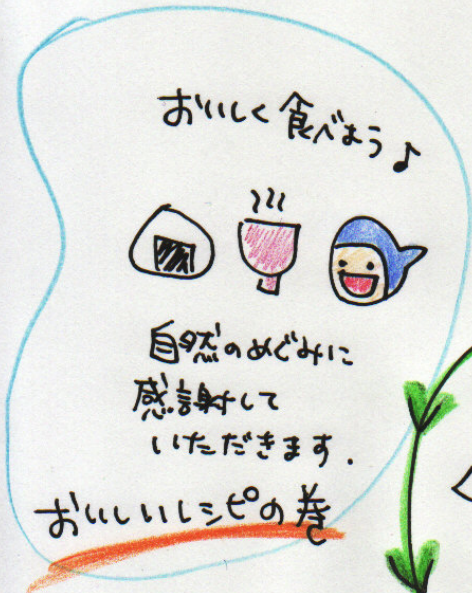 おいしく食べよう♪
自然のめぐみに
感謝して
いただきます.
おいしいレシピの巻